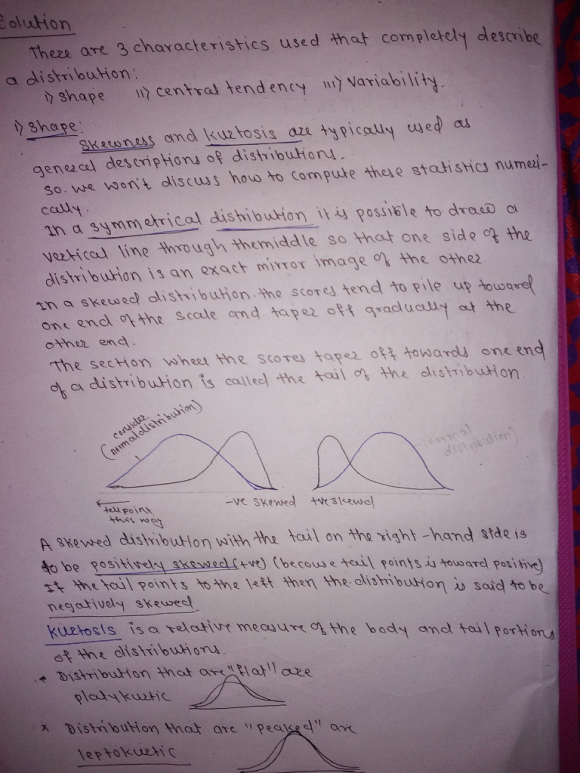 Solution
There are 3 characteristics used that completely describe
a distribution:
i) Shape ii) central tendency iii) Variability.
i) Shape:
Skewness and kurtosis are typically used as
general descriptions of distributions.
so. we won't discuss how to compute these statistics numeri-
cally.
In a symmetrical distribution it is possible to draw a
vertical line through themiddle so that one side of the
distribution is an exact mirror image of the other
In a skewed distribution. the scores tend to pile up toward
one end of the scale and taper off gradually at the
other end.
The section wheee the scores taper off towards one end
of a distribution is called the tail of the distribution.
(consider
normal distribution)
-ve skewed +ve skewed
tail point
this way
A skewed distribution with the tail on the right-hand side is
to be positively skewed (+ve) (because tail points is toward positive)
If the tail points to the left then the distribution is said to be
negatively skewed.
kurtosis is a relative measure of the body and tail portions
of the distributions.
* Distribution that are "flat" are
platykurtic
* Distribution that are "peaked" are
leptokurtic